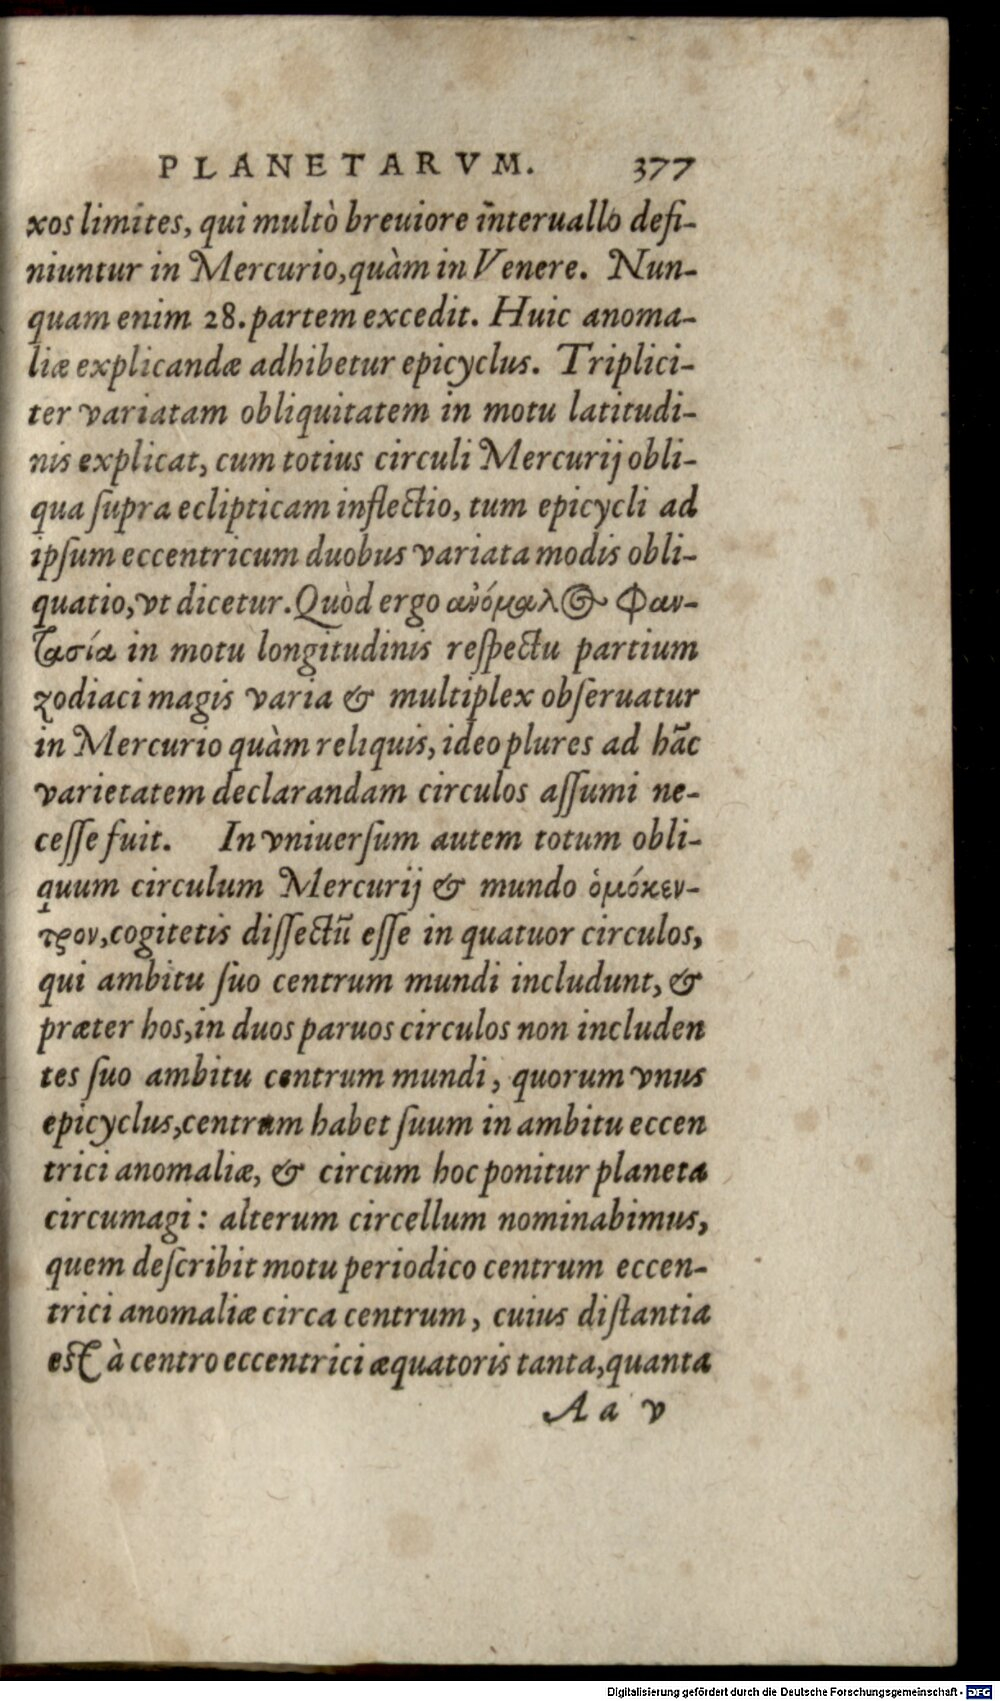 PLANETARVM. 377
xos limites, qui multò breuiore interuallo defi-
niuntur in Mercurio, quàm in Venere. Nun-
quam enim 28. partem excedit. Huic anoma-
liæ explicandæ adhibetur epicyclus. Triplici-
ter variatam obliquitatem in motu latitudi-
nis explicat, cum totius circuli Mercurij obli-
qua ſupra eclipticam inflectio, tum epicycli ad
ipſum eccentricum duobus variata modis obli-
quatio, vt dicetur. Quòd ergo ἀνόμαλος φαν-
τασία in motu longitudinis reſpectu partium
zodiaci magis varia & multiplex obſeruatur
in Mercurio quàm reliquis, ideo plures ad hãc
varietatem declarandam circulos aſſumi ne-
ceſſe fuit. In vniuerſum autem totum obli-
quum circulum Mercurij & mundo ὁμόκεν-
τρον, cogitetis diſſectũ eſſe in quatuor circulos,
qui ambitu ſuo centrum mundi includunt, &
præter hos, in duos paruos circulos non includen
tes ſuo ambitu centrum mundi, quorum vnus
epicyclus, centrum habet ſuum in ambitu eccen
trici anomaliæ, & circum hoc ponitur planeta
circumagi: alterum circellum nominabimus,
quem deſcribit motu periodico centrum eccen-
trici anomaliæ circa centrum, cuius diſtantia
est à centro eccentrici æquatoris tanta, quanta
Aa v
Digitalisierung gefördert durch die Deutsche Forschungsgemeinschaft - DFG